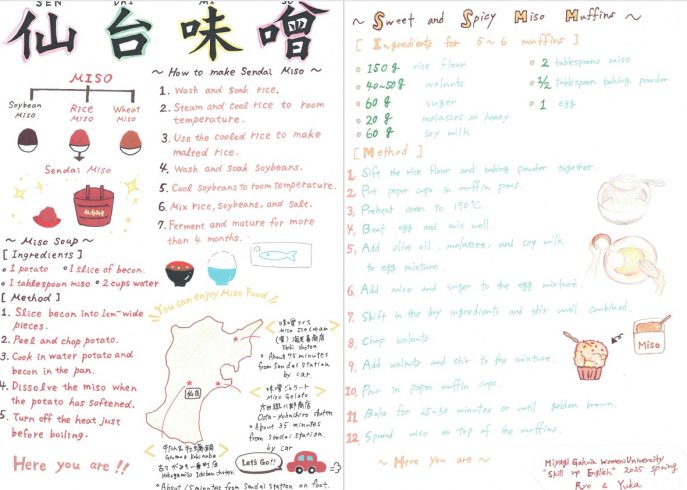 SEN DAI MI SO
仙台味噌
MISO
Soybean Miso
Rice Miso
Wheat Miso
Sendai Miso
~ How to make Sendai Miso ~
1. Wash and soak rice.
2. Steam and cool rice to room
temperature.
3. Use the cooled rice to make
malted rice.
4. Wash and soak Soybeans.
5. Cool soybeans to room temperature.
6. Mix rice, soybeans, and salt.
7. Ferment and mature for more
than 4 months.
~ Miso Soup ~
[ Ingredients ]
• 1 potato • 1 slice of becon.
• 1 tablespoon miso • 2 cups water
[ Method ]
1. Slice becon into 1cm-wide
pieces.
2. Peel and chop potato.
3. Cook in water potato and
becon in the pan.
4. Dissolve the miso when
the potato has softened.
5. Turn off the heat just
before boiling.
Here you are !!
You can enjoy Miso Food
仙台
Miso
• About 75 minutes
from Sendai Station
by car
Miso Gelato
• About 35 minutes
from Sendai station.
by car
• About 15 minutes from Sendai station on foot.
Let's Go!!
~ Sweet and Spicy Miso Muffins ~
[ Ingredients for 5~6 muffins ]
• 150g rice flour
• 40~50g walnuts
• 60g suger
• 20g molasses or honey
• 60g soy milk
• 2 tablespoons miso
• 1/2 tablespoon baking powder
• 1 egg
[ Method ]
1. Sift the rice flour and baking powder together.
2. Put paper cups in muffin pans.
3. Preheat oven to 170℃.
4. Beat egg and mix well.
5. Add olive oil, molasses, and soy milk
to egg mixture.
6. Add miso and suger to the egg mixture.
7. Shift in the dry ingredients and stir until combined.
8. Chop walnuts
9. Add walnuts and stir to the mixture.
10. Pour in paper muffin cups.
11. Bake for 25~30 minutes or until golden brown.
12. Spread miso on top of the muffins.
Miso
~ Here you are ~
Miyagi Gakuin Women's University
"Skill up English" 2025 spring
Ryo & Yuka